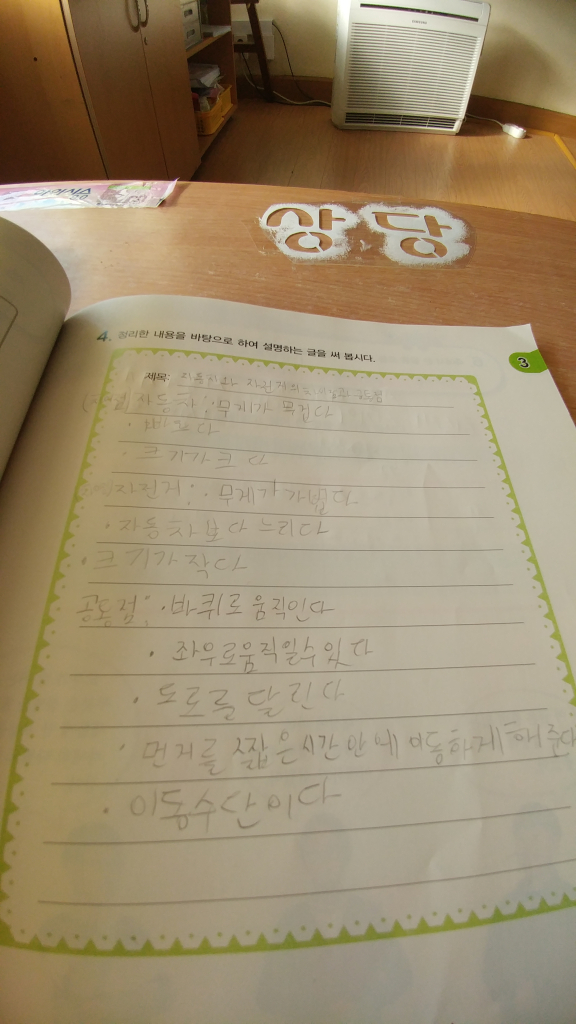 SAMSUNG
상당
4. 정리한 내용을 바탕으로 하여 설명하는 글을 써 봅시다.
3
제목: 자동차와 자전거의 공통점
자동차: ·무게가 무겁다
·빠르다
·크기가 크다
자전거: ·무게가 가볍다
·자동차보다 느리다
·크기가 작다
공통점: ·바퀴로 움직인다
·좌우로움직일수있다
·도로를 달린다
·먼거를 짧은시간안에 이동하게해준다
·이동수단이다